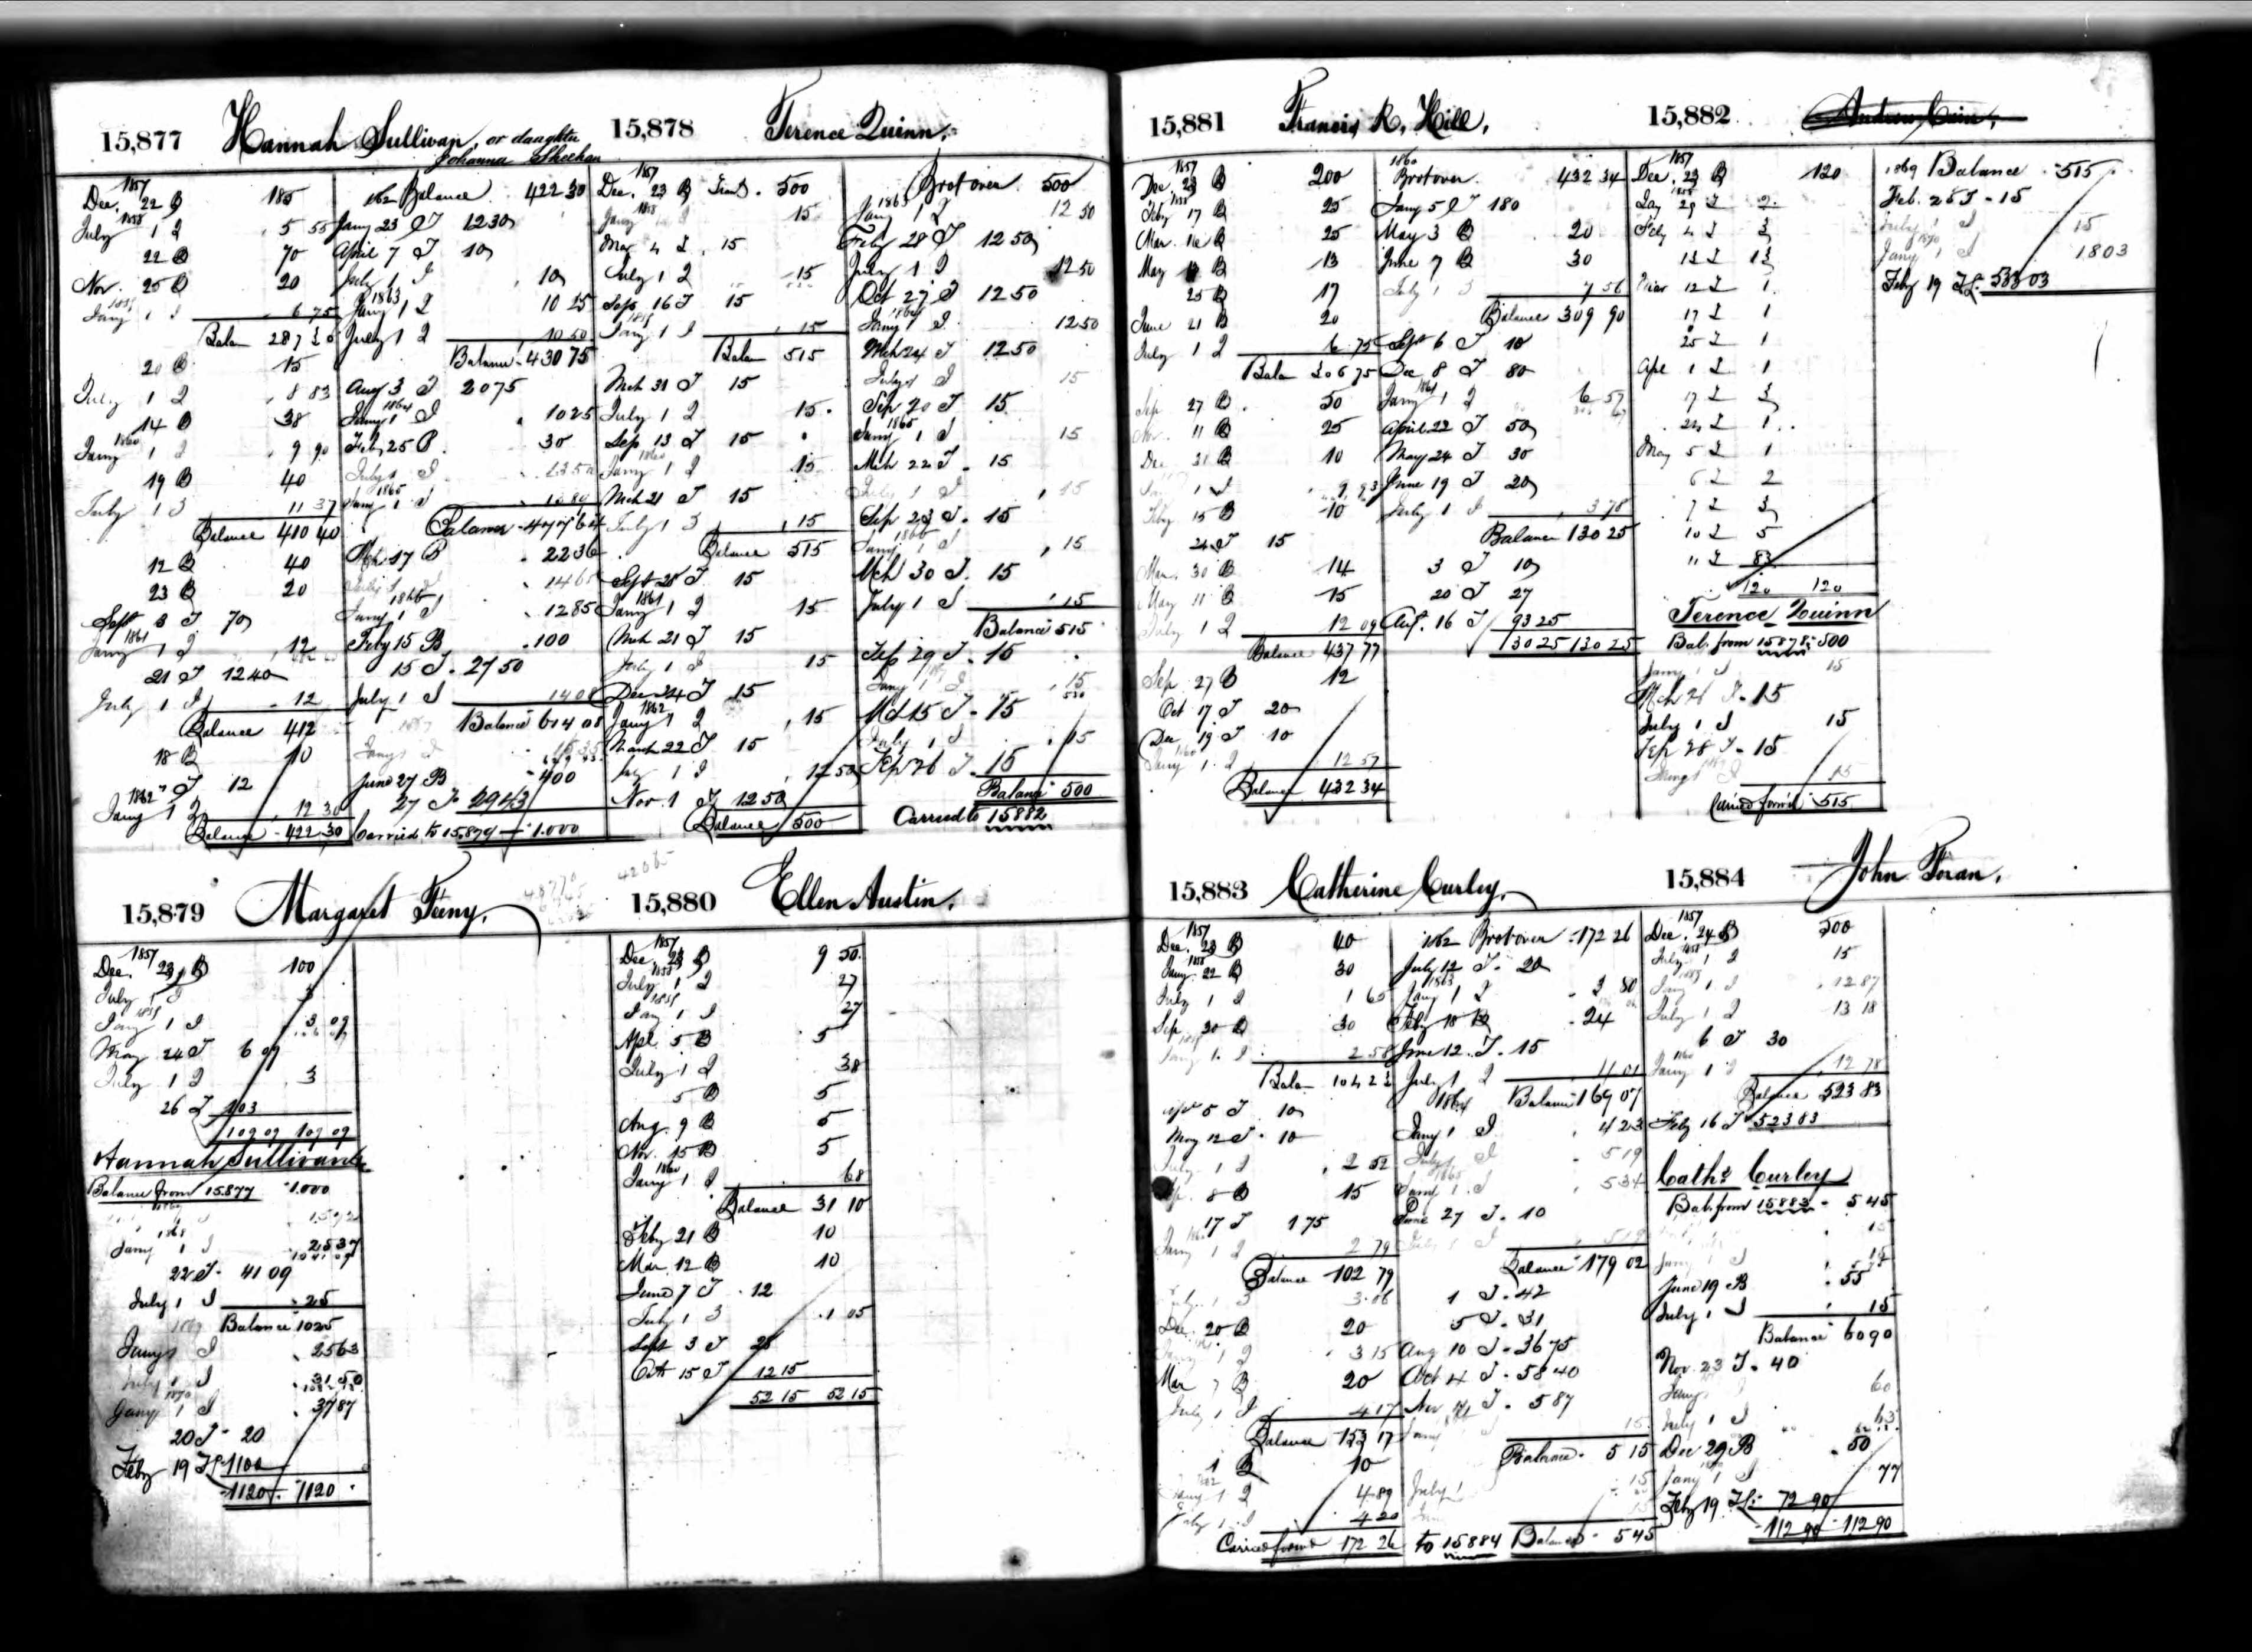 15,877 Hannah Sullivan, or daughter
Johanna Sheehan
1857
Dec. 22 B 185
1858
July 1 I 5 55
22 B 70
Nov. 25 B 20
1859
Jany 1 I 6 75
Balan 287 30
20 B 15
July 1 I 8 83
14 B 38
1860
Jany 1 I 9 90
19 B 40
July 1 I 11 37
Balance 410 40
12 B 40
23 B 20
Sept 3 T 70
1861
Jany 1 I 12
21 T 12 40
July 1 I 12
Balance 412
18 B 10
" T 12
1862
Jany 1 I 12 30
Balance 422 30
1862 Balance 422 30
Jany 23 T 12 30
April 7 T 10
July 1 I 10
1863
Jany 1 I 10 25
July 1 I 10 50
Balance 430 75
Aug 3 T 20 75
1864
Jany 1 I 10 25
Feb 25 B 30
July 1 I
1865
Jany 1 I
Balance 477 64
Mch 17 B 22 36
July 1 I
1866
Jany 1 I 12 85
Feby 15 B 100
15 T 27 50
July 1 I 14 08
Balance 614 08
Jany 1 I
June 27 B 400
27 T 29 43
Carried to 15.879 1.000
15,878 Terence Quinn.
1857
Dec. 23 B 500
1858
Jany 1 I 15
Mar 4 I 15
July 1 I 15
Sep. 16 T 15
1859
Jany 1 I 15
Balan 515
Mch 31 T 15
July 1 I 15
Sep 13 T 15
1860
Jany 1 I 15
Mch 21 T 15
July 1 I 15
Balance 515
Sept 28 T 15
1861
Jany 1 I 15
Mch 21 T 15
July 1 I 15
Dec 24 T 15
1862
Jany 1 I 15
March 22 T 15
July 1 I 12 50
Nov. 1 T 12 50
Balance 500
Brot over 500
1863
Jany 1 I 12 50
Feby 28 T 12 50
July 1 I 12 50
Oct 27 T 12 50
1864
Jany 1 I 12 50
Mch 24 T 12 50
July 1 I 15
Sep 20 T 15
1865
Jany 1 I 15
Mch 22 T 15
July 1 I 15
Sep 23 T 15
1866
Jany 1 I 15
Mch 30 T 15
July 1 I 15
Balance 515
Sep 29 T 15
Jany 1 I 15
530
Mch 15 T 15
July 1 I 15
Sep 26 T 15
Balance 500
Carried to 15882
15,879 Margaret Feeny.
1857
Dec. 23 B 100
July 1 I 3
1859
Jany 1 I 3 09
May 24 T 6 09
July 1 I 3
26 T 103
109 09 109 09
Hannah Sullivan
Balance from 15.877 1.000
1868
Jany 1 I 25 37
22 T 41 09
July 1 I 25
1869 Balance 1025
Jany 1 I 25 63
July 1 I 31 50
1870
Jany 1 I 37 87
20 T 20
Feby 19 Tf 1100
1120 1120
15,880 Ellen Austin.
1857
Dec. 23 B 9 50
1858
July 1 I 27
1859
Jany 1 I 27
Apl. 5 B 5
July 1 I 38
5 B 5
Aug. 9 B 5
Nov. 15 B 5
1860
Jany 1 I 68
Balance 31 10
Feby 21 B 10
Mar. 12 B 10
June 7 T 12
July 1 I 1 05
Sept 3 T 28
Oct 15 T 12 15
52 15 52 15
15,881 Francis R. Hill.
1857
Dec. 23 B 200
1858
Feby 17 B 25
Mar. 16 B 25
May B 13
25 B 17
June 21 B 20
July 1 I 6 75
Balan 306 75
Sep 27 B 50
Nov. 11 B 25
Dec 31 B 10
1 I 9 93
Feby 15 B 10
24 T 15
Mar. 30 B 14
May 11 B 15
July 1 I 12 09
Balance 437 77
Sep. 27 B 12
Oct 17 T 20
Dec 19 T 10
1860
Jany 1 I 12 57
Balance 432 34
1860
Brot over 432 34
Jany 5 T 180
May 3 B 20
June 7 B 30
July 1 I 7 56
Balance 309 90
Sept 6 T 10
Dec 8 T 80
1861
Jany 1 I 6 57
April 22 T 50
May 24 T 30
June 19 T 20
July 1 I 3 78
Balance 130 25
3 T 10
20 T 27
Augt. 16 T 93 25
130 25 130 25
15,882 Andrew Cain.
1857
Dec. 23 B 120
1858
Jany 29 I 2
Feby 4 I 3
13 I 13
Mar 12 I 1
17 I 1
25 I 1
Apl 1 I 1
17 I 3
24 I 1
May 5 I 1
6 I 2
7 I 3
10 I 5
11 I 83
120 120
Terence Quinn
Bal. from 15878 500
Jany 1 I 15
Mch 26 T 15
July 1 I 15
Sep 28 T 15
Jany 1 I 15
Carried forwd 515
1869 Balance 515
Feb. 25 T 15
July 1 I 15
1870
Jany 1 I 18 03
Feby 19 Tf. 533 03
15,883 Catherine Curley.
1857
Dec. 23 B 40
1858
Jany 22 B 30
July 1 I 1 65
Sep. 30 B 30
1859
Jany 1 I 2 58
Balan 104 23
5 T 10
May 12 T 10
July 1 I 2 52
8 B 15
17 T 1 75
1860
Jany 1 I 2 79
Balance 102 79
July 1 I 3 06
Dec. 20 B 20
1 I 3 15
Mar 7 B 20
July 1 I 4 17
Balance 153 17
1 B 10
1862
Jany 1 I 4 89
July 1 I 4 20
Carried forwd 172 26
1862 Brot over 172 26
July 12 T 20
1863
Jany 1 I 3 80
Feby 18 B 24
June 12 T 15
July 1 I 4 01
1864 Balance 169 07
Jany 1 I 4 23
July 1 I 5 19
1865
Jany 1 I 5 34
June 27 T 10
July 1 I 5 19
Balance 179 02
1 T 42
5 T 31
Aug 10 T 36 75
Oct 4 T 58 40
Nov T 5 87
Jany I 15
Balance 5 15
July 1 15
to 15884 Balance 5 45
15,884 John Foran.
1857
Dec. 24 B 500
1858
July 1 I 15
1859
Jany 1 I 12 87
July 1 I 13 18
6 T 30
1860
Jany 1 I 12 78
Balance 523 83
Feby 16 T 523 83
Cath. Curley
Bal. from 15883 5 45
15
Jany 1 I 15
June 19 B 55
July 1 I 15
Balance 60 90
Nov. 23 T 40
Jany 60
July 1 I 63
Dec 29 B 50
Jany 1 I 77
Feby 19 Tf. 72 90
112 90 112 90